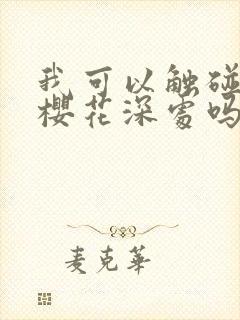 我可以触碰
樱花深处吗
麦克华